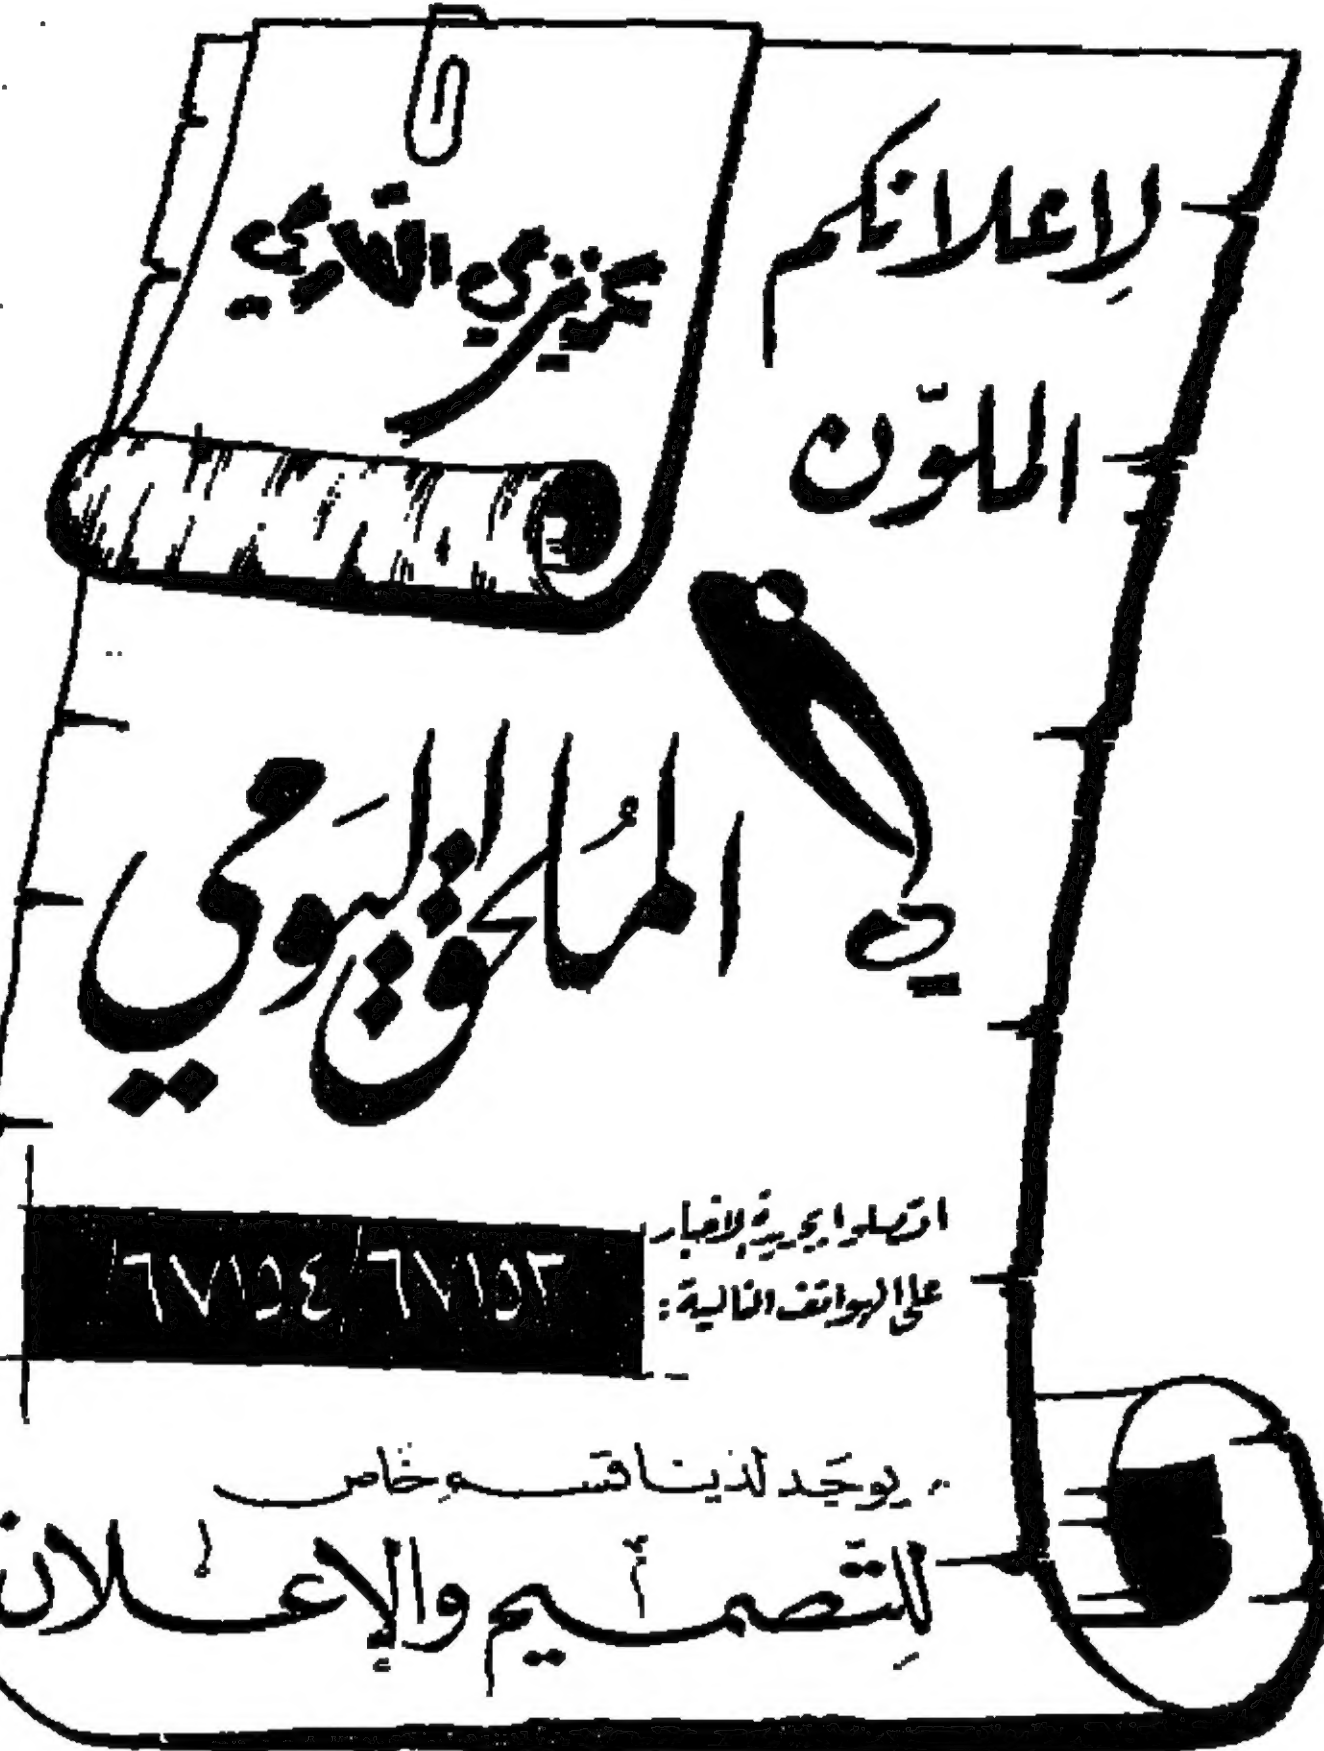 عزيزي القارئ
لإعلاناتكم
اللوّن
في
المُلحق اليَومي
اتصلوا بجريدة الأخبار
على الهواتف التالية:
٦٧١٥٣ / ٦٧١٥٤
يوجَد لدينا قسم خاص
لِلتصميم والإعلان